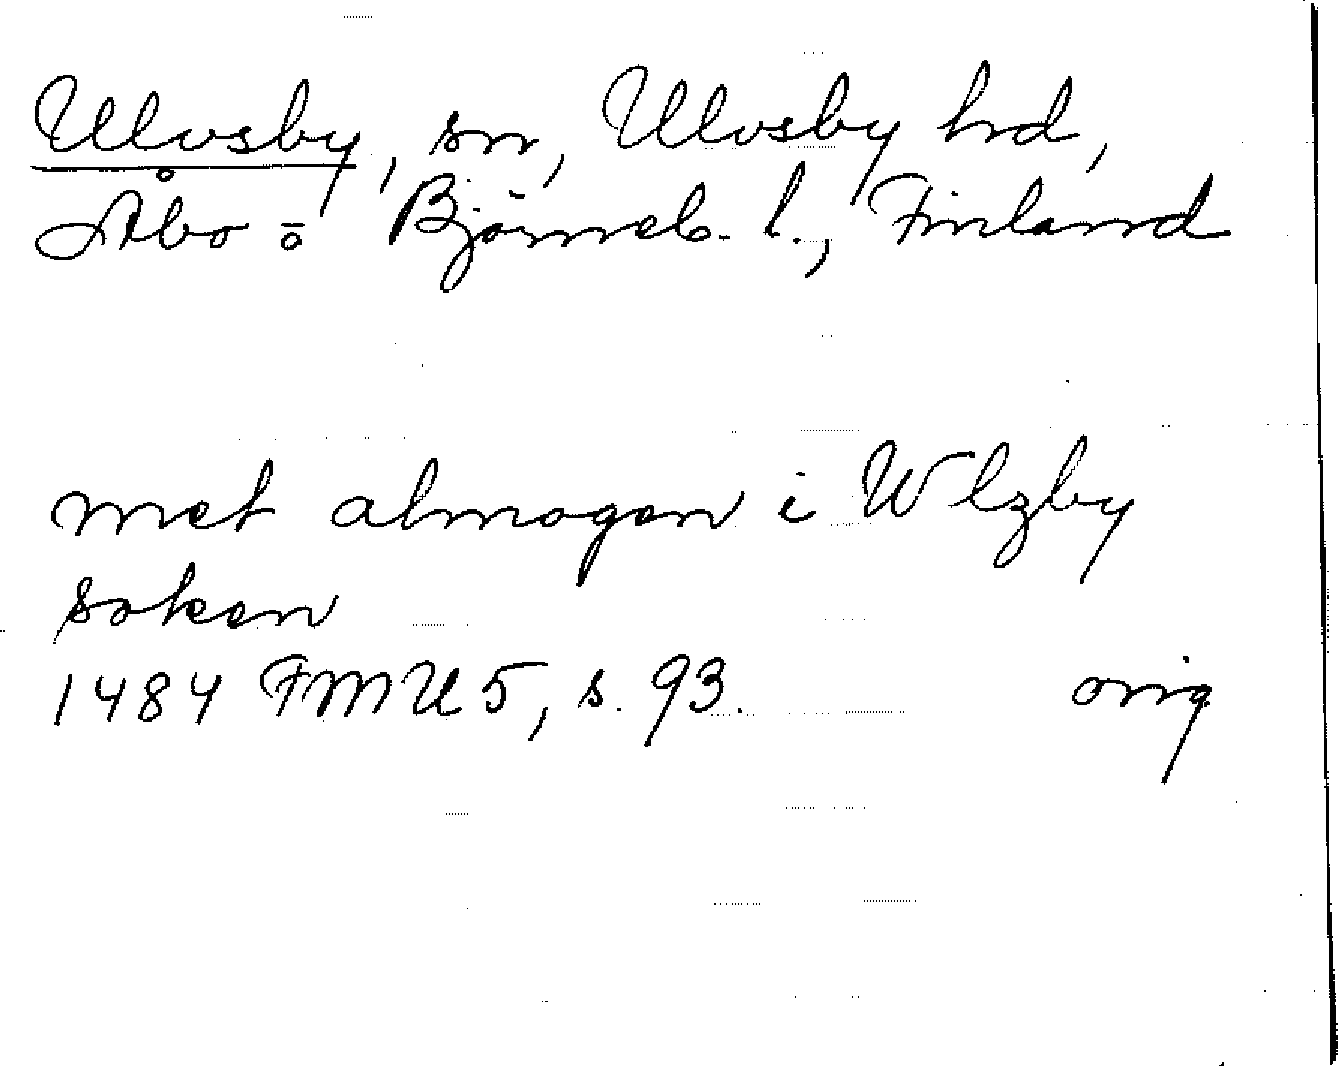 Ulvsby, sn, Ulvsby hrd,
Åbo o Björneb. l., Finland
met almogen i Wlzby
soken
1484 FMU 5, s. 93. orig